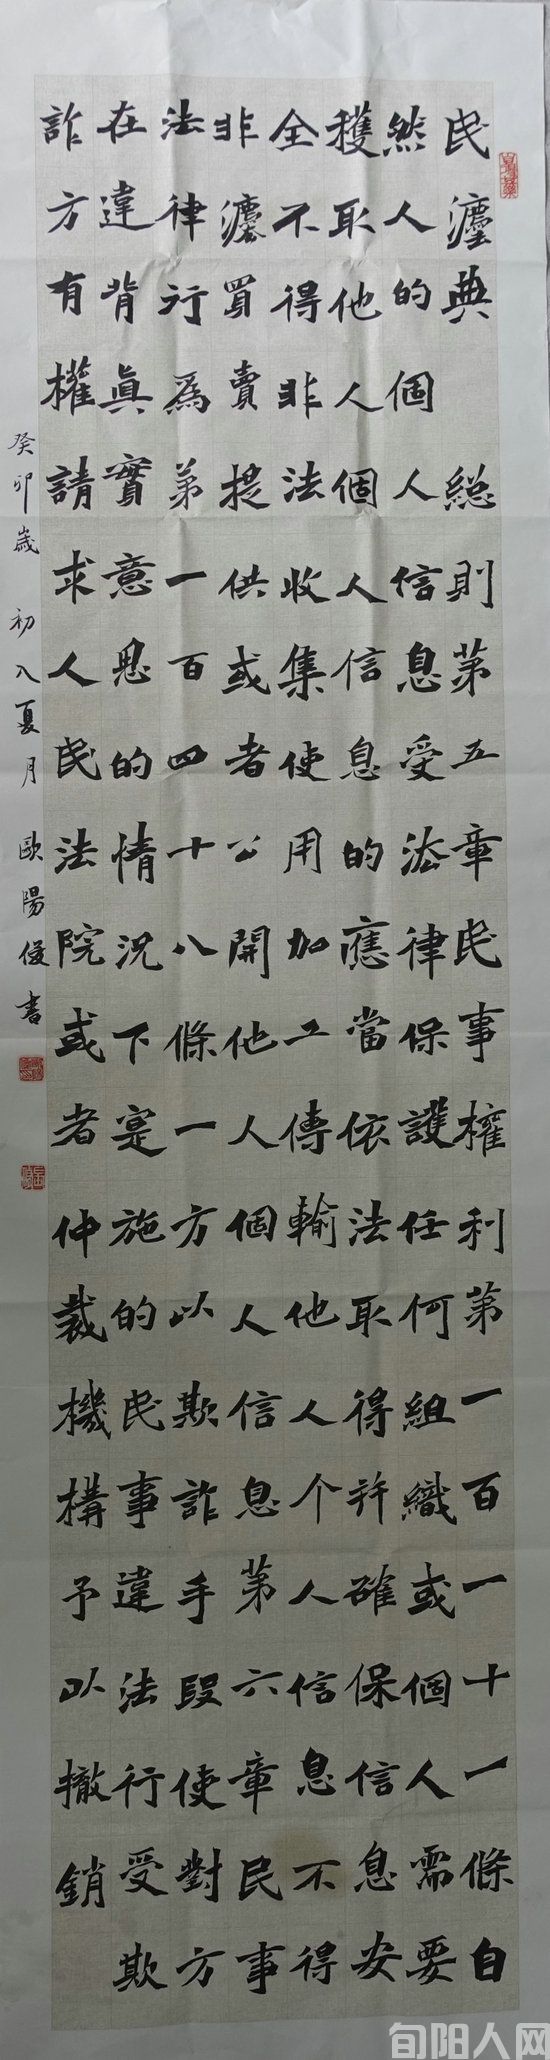 民灋典 総則第五章民事權利第一百一十一條自
然人的個人信息受法律保護任何組織或個人需要
穫取他人個人信息的應當依法取得并確保信息安
全不得非法收集使用加工傳輸他人个人信息不得
非灋買賣提供或者公開他人個人信息第六章民事
法律行為第一百四十八條一方以欺詐手段使對方
在違背眞實意思的情況下寔施的民事違法行受欺
詐方有權請求人民法院或者仲裁機構予以撤銷
癸卯歲 初入夏月 歐陽俊書
旬阳人网